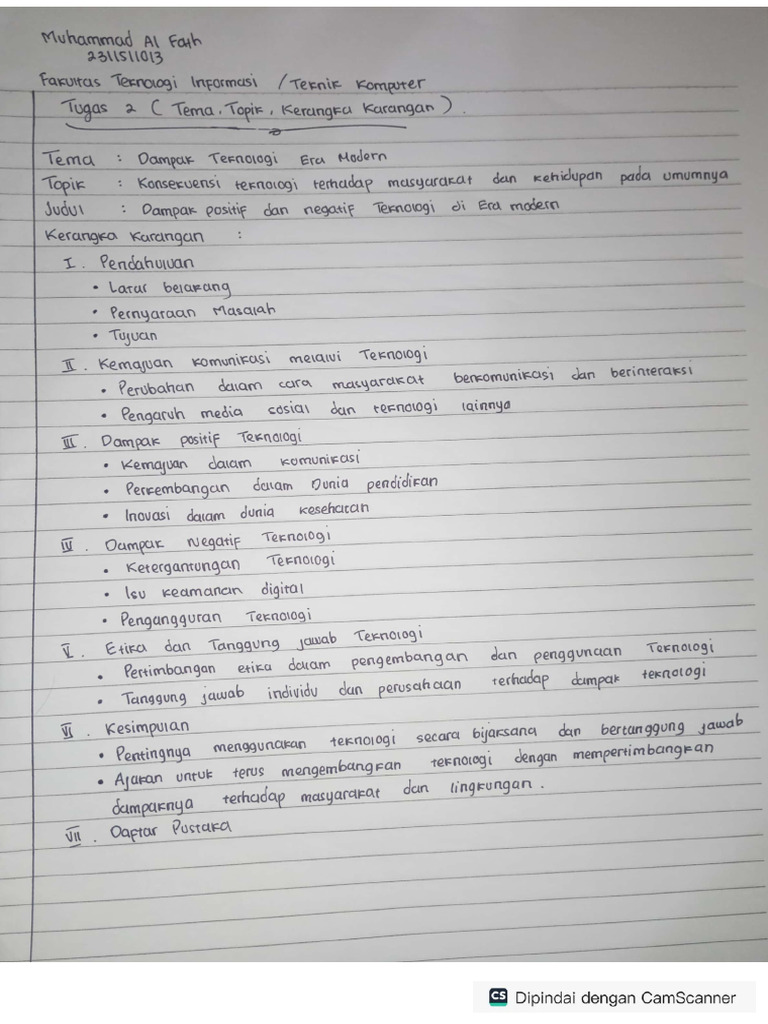 Muhammad Al Fatih
2311511013
Fakultas Teknologi Informasi / Teknik Komputer
Tugas 2 ( Tema, Topik, Kerangka Karangan ).
Tema : Dampak Teknologi Era Modern
Topik : Konsekuensi teknologi terhadap masyarakat dan kehidupan pada umumnya
Judul : Dampak positif dan negatif Teknologi di Era modern
Kerangka Karangan :
I. Pendahuluan
• Latar belakang
• Pernyataan Masalah
• Tujuan
II. Kemajuan komunikasi melalui Teknologi
• Perubahan dalam cara masyarakat berkomunikasi dan berinteraksi
• Pengaruh media sosial dan teknologi lainnya
III. Dampak positif Teknologi
• Kemajuan dalam komunikasi
• Perkembangan dalam Dunia pendidikan
• Inovasi dalam dunia kesehatan
IV. Dampak Negatif Teknologi
• Ketergantungan Teknologi
• Isu keamanan digital
• Pengangguran Teknologi
V. Etika dan Tanggung jawab Teknologi
• Pertimbangan etika dalam pengembangan dan penggunaan Teknologi
• Tanggung jawab individu dan perusahaan terhadap dampak teknologi
VI. Kesimpulan
• Pentingnya menggunakan teknologi secara bijaksana dan bertanggung jawab
• Ajakan untuk terus mengembangkan teknologi dengan mempertimbangkan
dampaknya terhadap masyarakat dan lingkungan.
VII. Daftar Pustaka
CS Dipindai dengan CamScanner